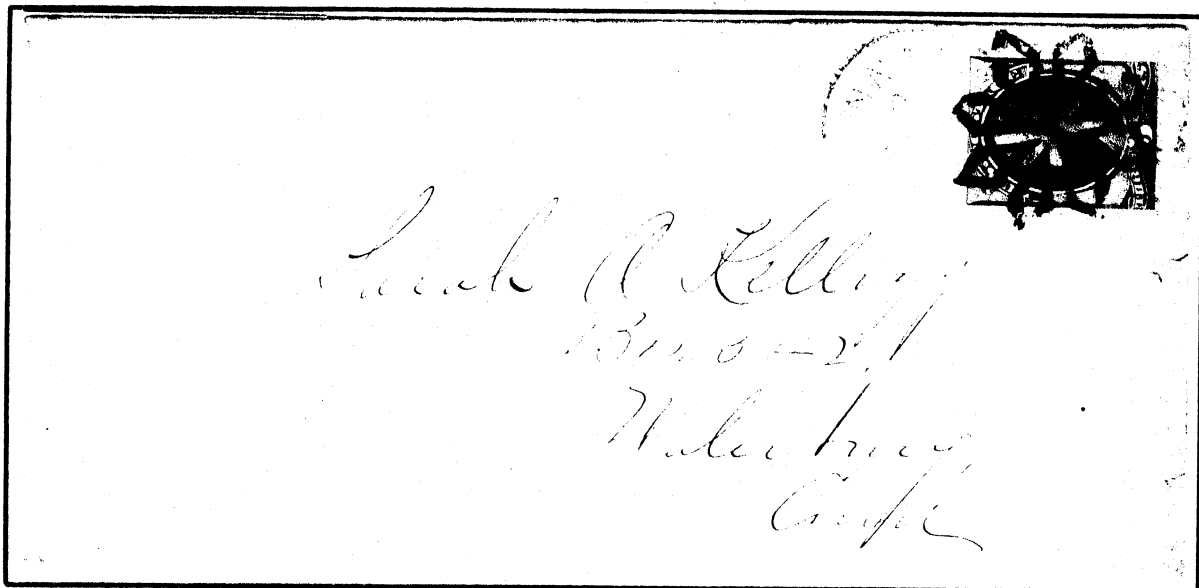 WA
Sarah A Kellogg
Box
Waterbury
Conn